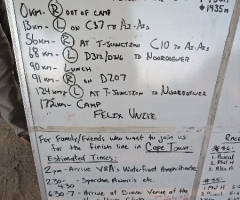 0km - R OUT OF CAMP
13km - L ON C37 TO Ai-Ais
56km - R AT T-JUNCTION C10 TO Ai-Ais
68km - L TO NOORDOEWER
90km - LUNCH
91km - R ON D207
124km - L AT T-JUNCTION TO NOORDOEWER
172km - CAMP
FELIX UNITE
1435m
For Family/Friends who want to join us
for the finish line in Cape Town:
Estimated Times:
2pm - Arrive V&A's Waterfront Amphitheatre
2:30 - 4:30
6:30 - Arrive at Dinner Venue of the